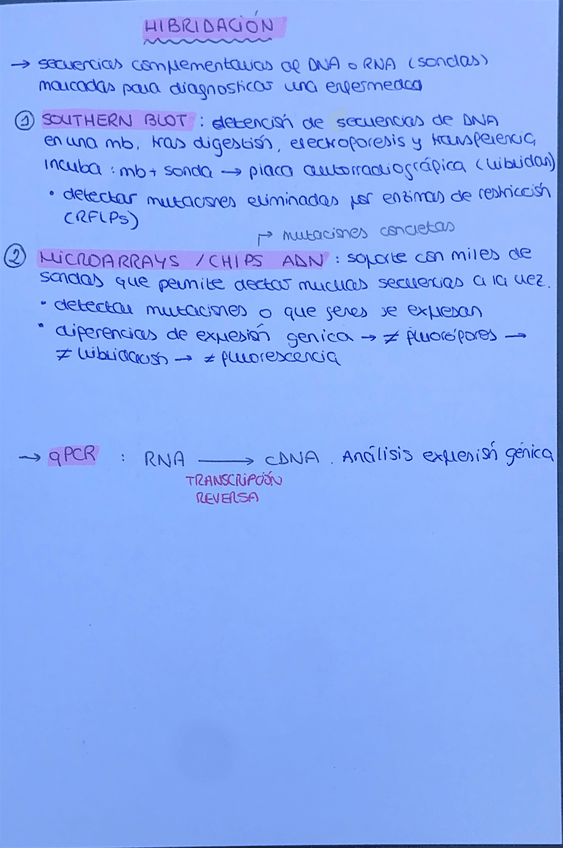 HIBRIDACIÓN
→ secuencias complementarias al DNA o RNA (sondas)
marcadas para diagnosticar una enfermedad
① SOUTHERN BLOT : detención de secuencias de DNA
en una mb, tras digestión, electroforesis y transferencia,
incuba : mb + sonda → placa autorradiográfica (hibridan)
• detectar mutaciones eliminadas por enzimas de restricción
(RFLPs)
↱ mutaciones concretas
② MICROARRAYS / CHIPS ADN : soporte con miles de
sondas que permite dectar muchas secuencias a la vez.
• detectar mutaciones o que genes se expresan
• diferencias de expresión génica → ≠ fluoróforos →
≠ hibridación → ≠ fluorescencia
→ qPCR : RNA → cDNA . Análisis expresión génica
TRANSCRIPCIÓN
REVERSA